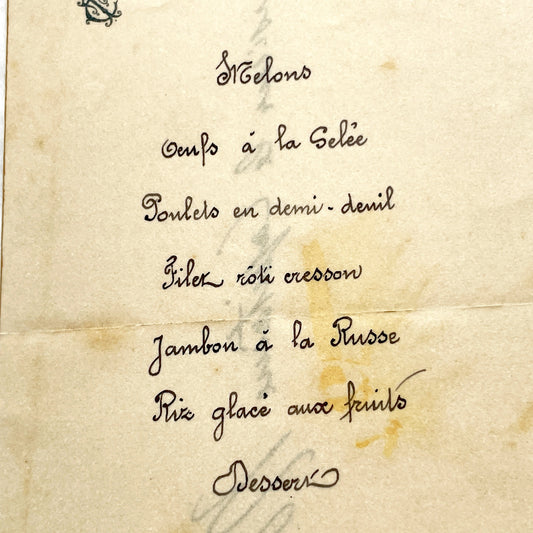 Melons
Œufs à la Gelée
Poulets en demi-deuil
Filet rôti cresson
Jambon à la Russe
Riz glacé aux fruits
Dessert